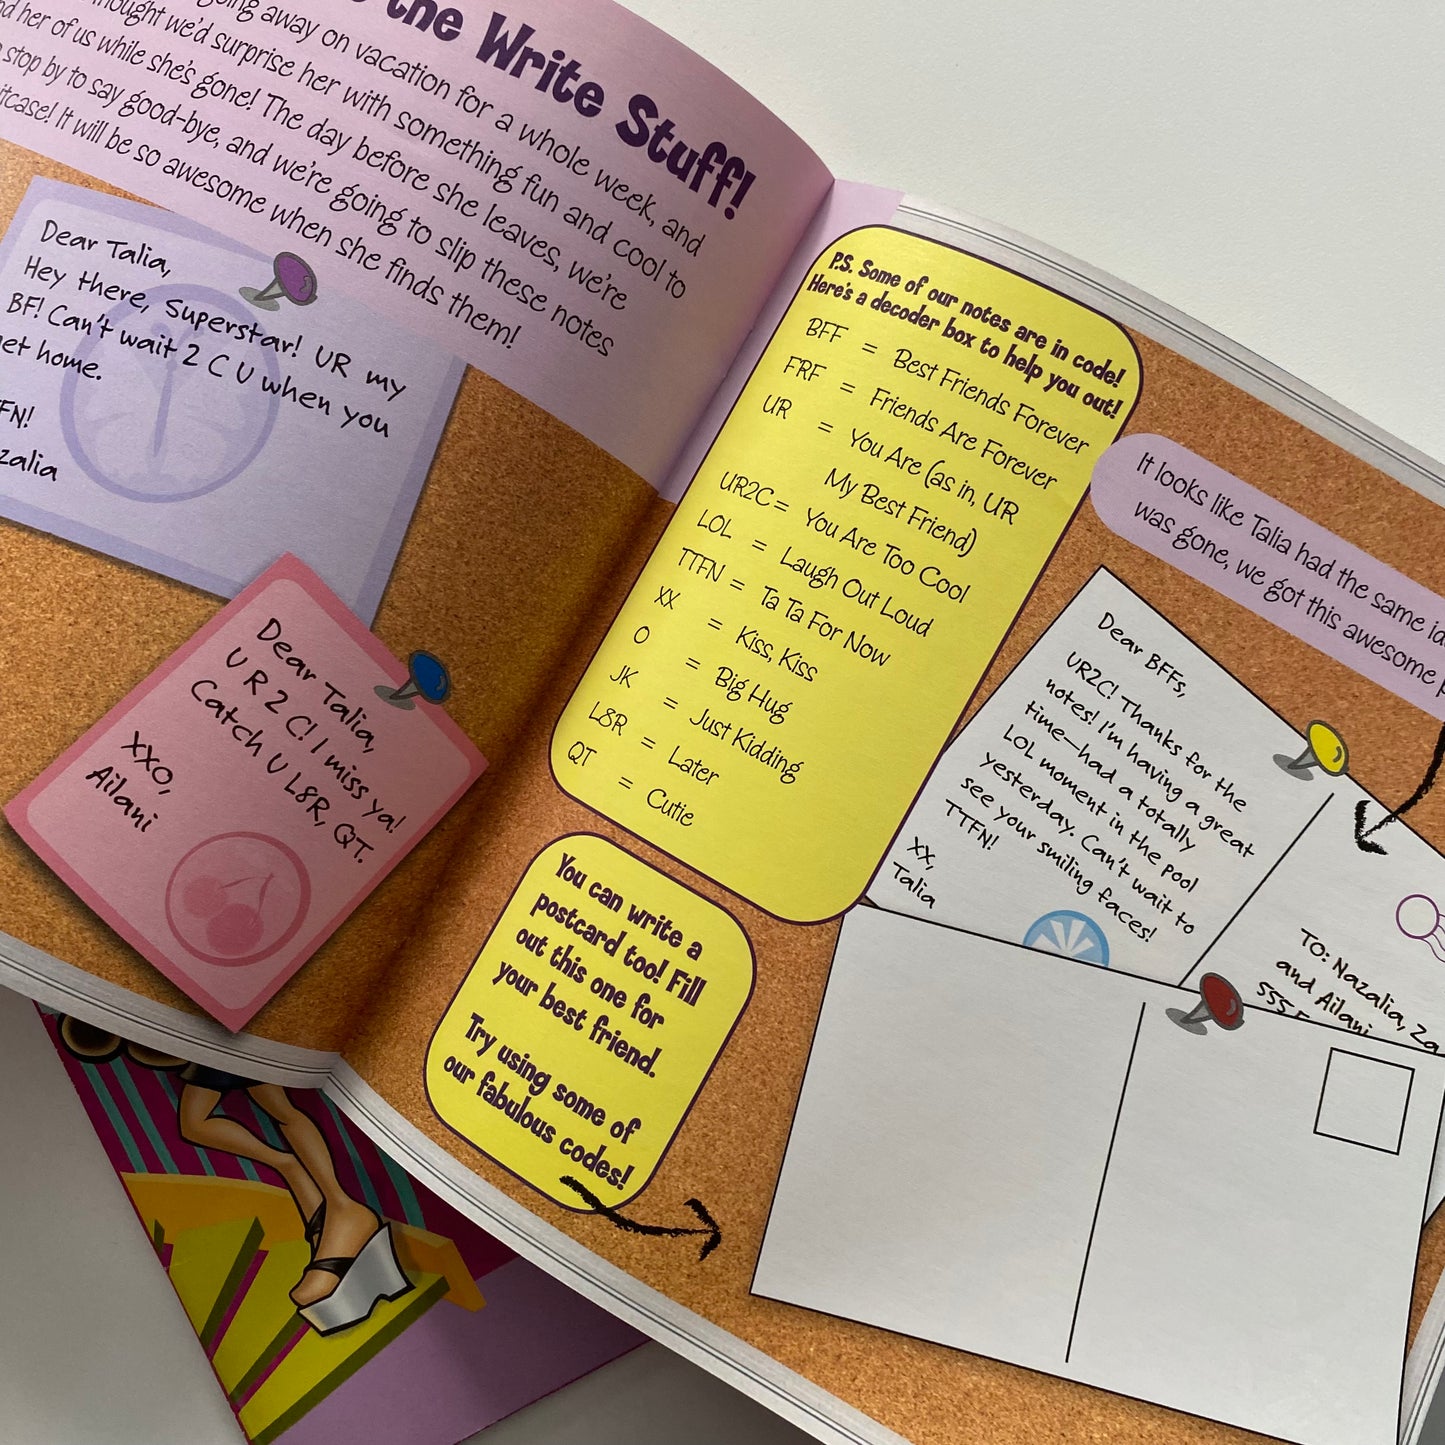 the Write Stuff!
going away on vacation for a whole week, and
thought we'd surprise her with something fun and cool to
her of us while she's gone! The day before she leaves, we're
stop by to say good-bye, and we're going to slip these notes
It will be so awesome when she finds them!
Dear Talia,
Hey there, Superstar! UR my
BF! Can't wait 2 C U when you
home.
Dear Talia,
U R 2 C! I miss ya!
Catch U L8R, QT.
XXO,
Ailani
P.S. Some of our notes are in code!
Here's a decoder box to help you out!
BFF = Best Friends Forever
FRF = Friends Are Forever
UR = You Are (as in, UR
My Best Friend)
UR2C = You Are Too Cool
LOL = Laugh Out Loud
TTFN = Ta Ta For Now
XX = Kiss, Kiss
O = Big Hug
JK = Just Kidding
L8R = Later
QT = Cutie
You can write a
postcard too! Fill
out this one for
your best friend.
Try using some of
our fabulous codes!
It looks like Talia had the same
was gone, we got this awesome
Dear BFFs,
UR2C! Thanks for the
notes! I'm having a great
time—had a totally
LOL moment in the pool
yesterday. Can't wait to
see your smiling faces!
TTFN!
XX,
Talia
TO: Nazalia, Za
and Ailani
555